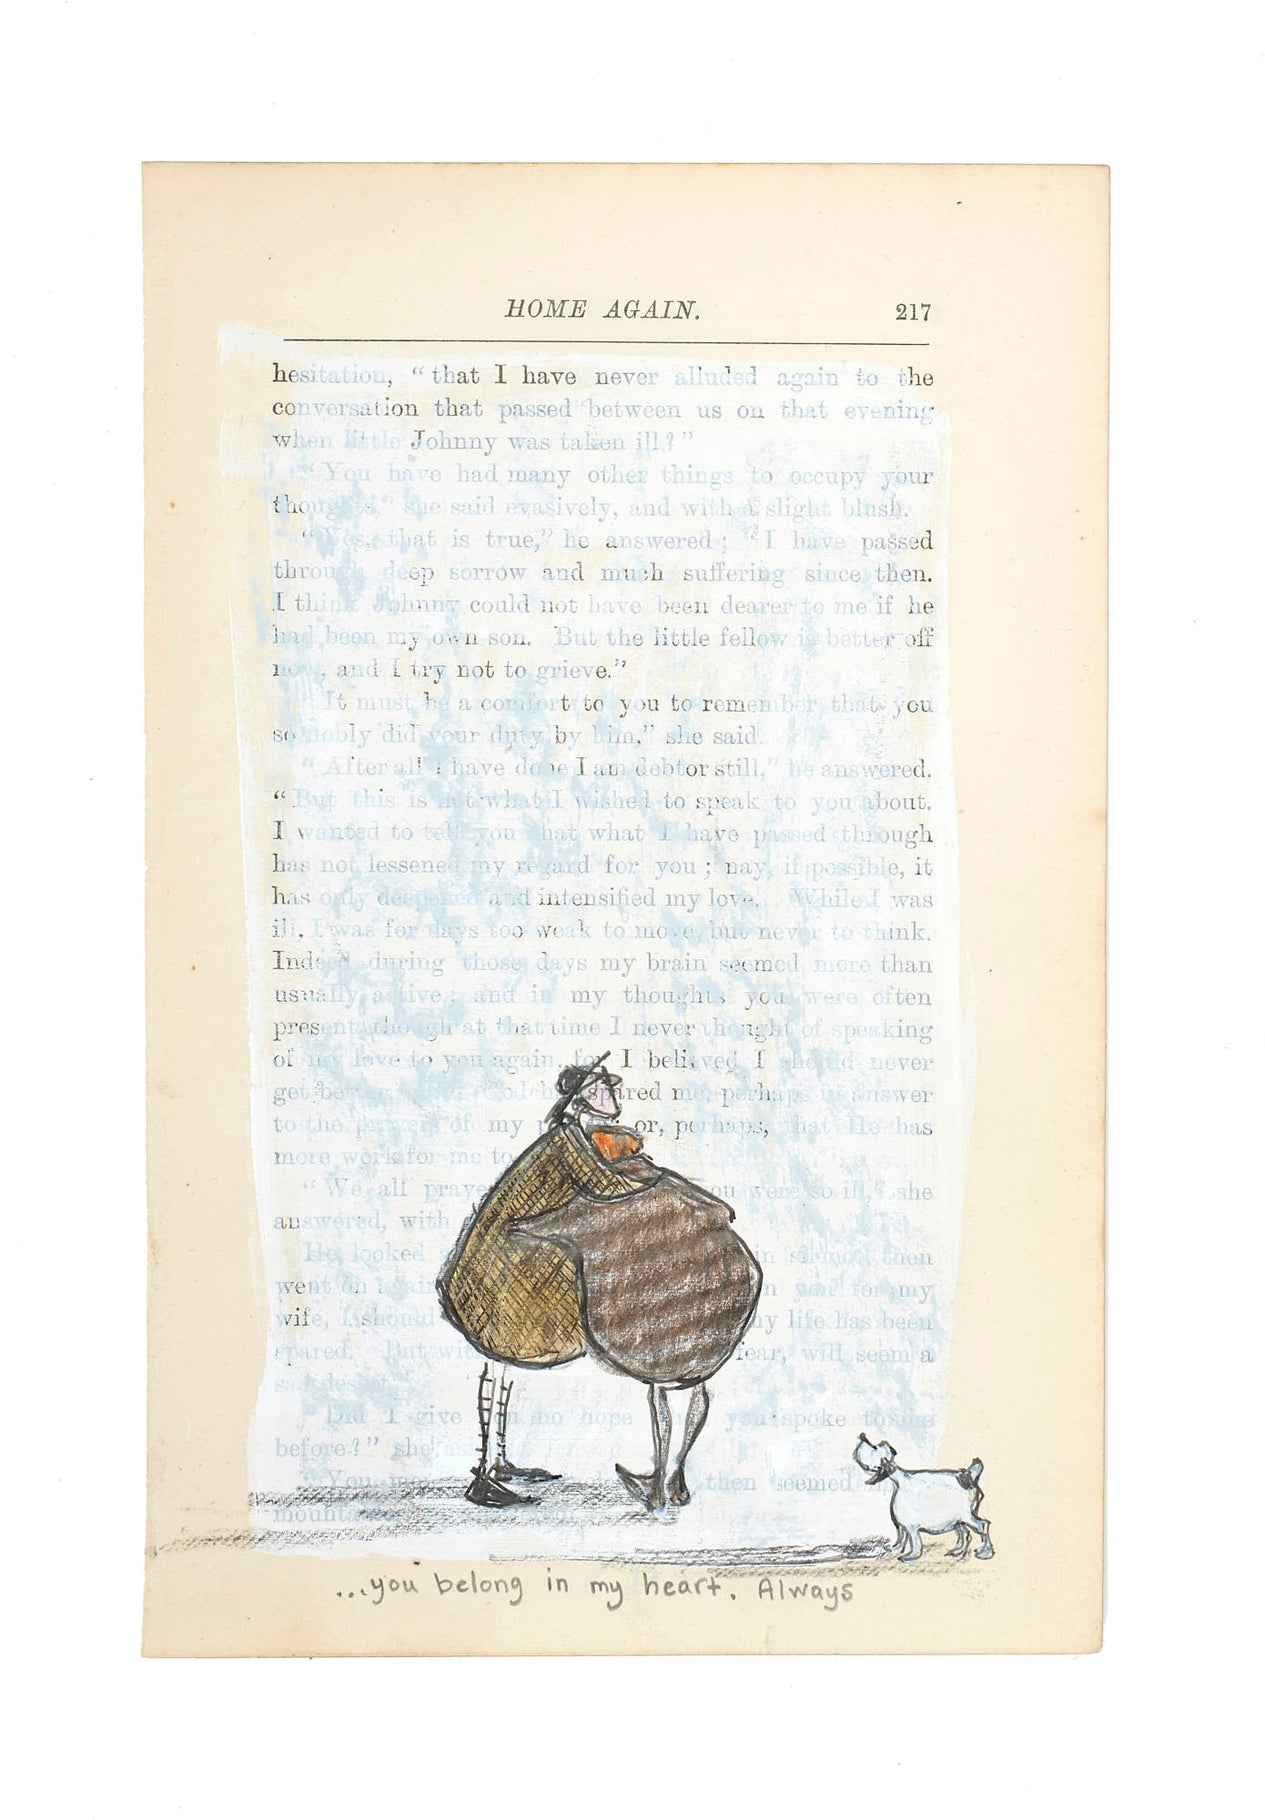 HOME AGAIN. 217
hesitation, “that I have never alluded again to the
conversation that passed between us on that evening
when little Johnny was taken ill?”
“You have had many other things to occupy your
thoughts,” she said evasively, and with a slight blush.
“Yes, that is true,” he answered; “I have passed
through deep sorrow and much suffering since then.
I think Johnny could not have been dearer to me if he
had been my own son. But the little fellow is better off
now, and I try not to grieve.”
“It must be a comfort to you to remember that you
so nobly did your duty by him,” she said.
“After all I have done I am debtor still,” he answered.
“But this is not what I wished to speak to you about.
I wanted to tell you that what I have passed through
has not lessened my regard for you; nay, if possible, it
has only deepened and intensified my love. While I was
ill, I was for days too weak to move, but never to think.
Indeed during those days my brain seemed more than
usually active; and in my thoughts you were often
present, though at that time I never thought of speaking
of my love to you again, for I believed I should never
get better. God spared me, perhaps in answer
to the prayers of my or, perhaps, that He has
more work for me to
“We all you were so ill,” she
answered, with
He looked in silence, then
went on again you for my
wife, I should my life has been
spared. But fear, will seem a
sad
“Did I give you no hope when you spoke to me
before?” she
“You then seemed
...you belong in my heart. Always